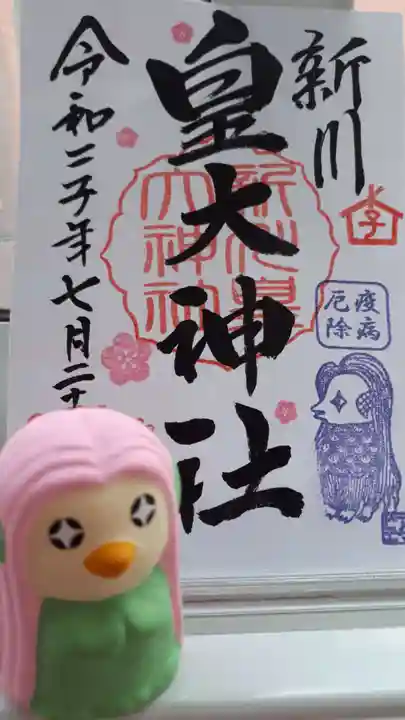 新川
皇大神社
令和二子年七月二十
疫病
厄除
新川皇
大神社
子